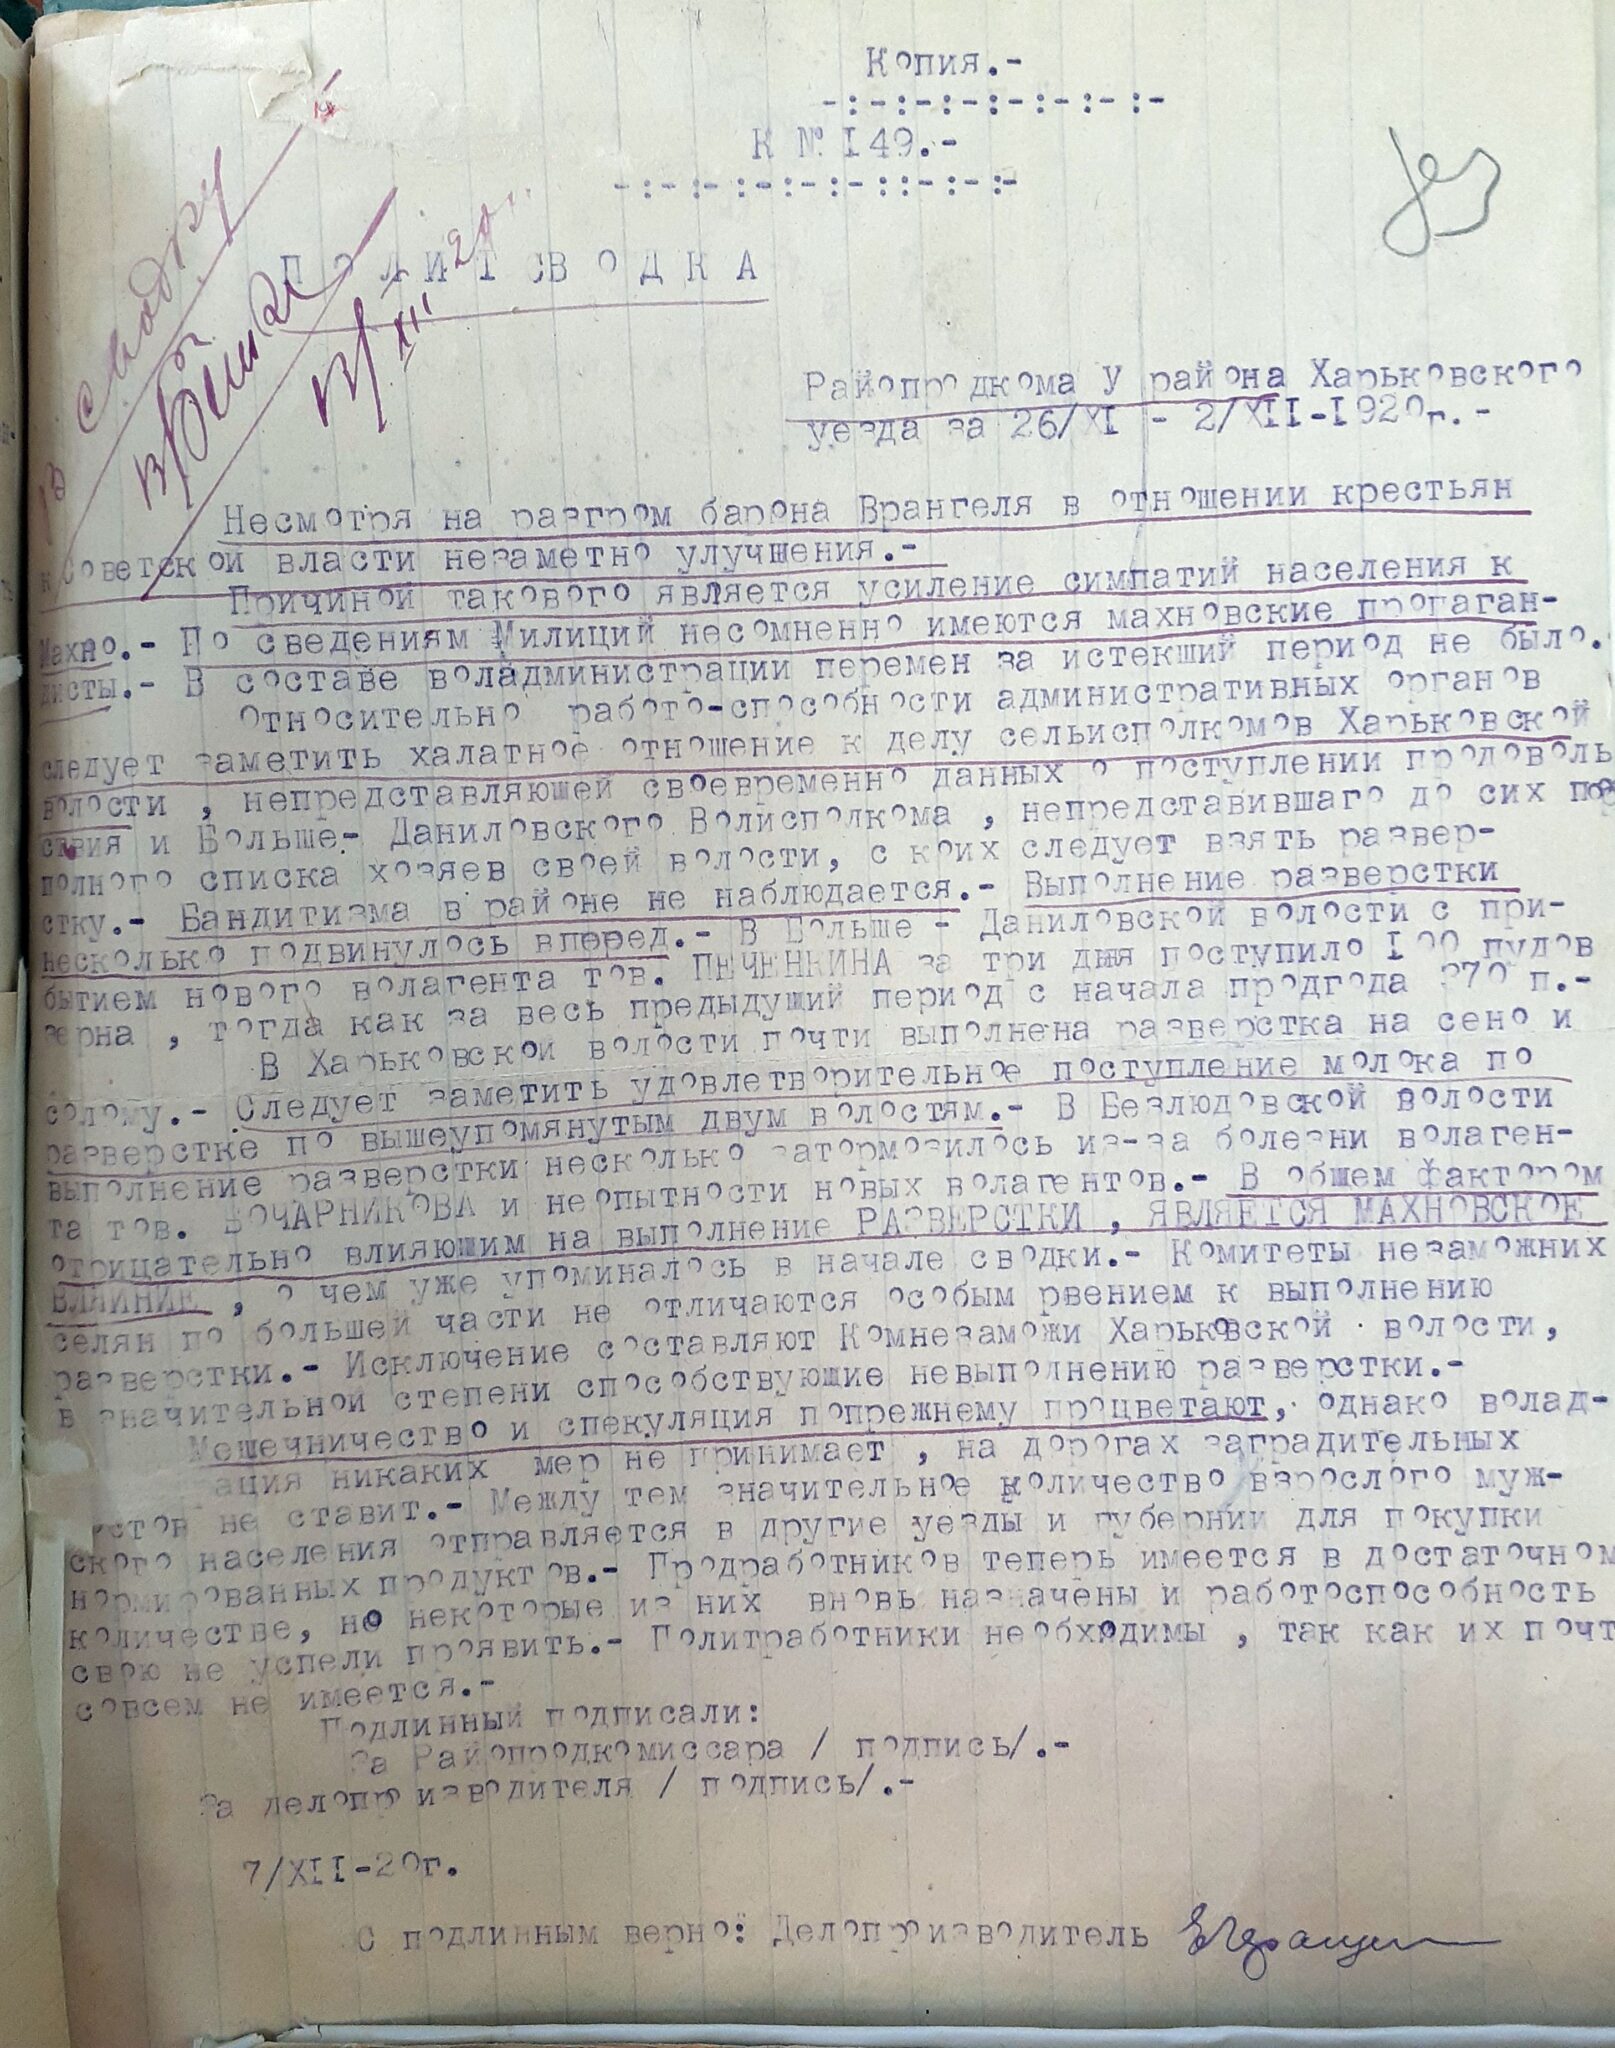 Копия.-
-:-:-:-:-:-:-:-
К № I49.-
-:-:-:-:-:-::-:-:-
в сводку
ПОЛИТСВОДКА
В/XII 20
Райопродкома У района Харьковского
уезда за 26/XI - 2/XII-I920г.-
Несмотря на разгром барона Врангеля в отношении крестьян
к Советской власти незаметно улучшения.-
Причиной такового является усиление симпатий населения к
Махно.- По сведениям Милиций несомненно имеются махновские пропаган-
дисты.- В составе воладминистрации перемен за истекший период не было.
Относительно работо-способности административных органов
следует заметить халатное отношение к делу сельисполкомов Харьковской
волости , непредставляюшей своевременно данных о поступлении продоволь
ствия и Больше- Даниловского Волисполкома , непредставившаго до сих пор
полного списка хозяев своей волости, с коих следует взять развер-
стку.- Бандитизма в районе не наблюдается.- Выполнение разверстки
несколько подвинулось вперед.- В Больше - Даниловской волости с при-
бытием нового волагента тов. ПЕЧЕНКИНА за три дня поступило I00 пудов
зерна , тогда как за весь предыдуший период с начала продгода 370 п.-
В Харьковской волости почти выполнена разверстка на сено и
солому.- Следует заметить удовлетворительное поступление молока по
разверстке по вышеупомянутым двум волостям.- В Безлюдовской волости
выполнение разверстки несколько затормозилось из-за болезни волаген-
та тов. БОЧАРНИКОВА и неопытности новых волагентов.- В обшем фактором
отрицательно влияюшим на выполнение РАЗВЕРСТКИ , ЯВЛЯЕТСЯ МАХНОВСКОЕ
ВЛИЯНИЕ , о чем уже упоминалось в начале сводки.- Комитеты незаможних
селян по большей части не отличаются особым рвением к выполнению
разверстки.- Исключение составляют Комнезаможи Харьковской волости,
в значительной степени способствуюшие невыполнению разверстки.-
Мешечничество и спекуляция попрежнему процветают, однако волад-
ация никаких мер не принимает , на дорогах заградительных
стов не ставит.- Между тем значительное количество взрослого муж-
ского населения отправляется в другие уезды и губернии для покупки
нормированных продуктов.- Продработников теперь имеется в достаточном
количестве, но некоторые из них вновь назначены и работоспособность
свою не успели проявить.- Политработники необходимы , так как их почт
совсем не имеется.-
Подлинный подписали:
За Райопродкомиссара / подпись/.-
За делопроизводителя / подпись/.-
7/XII-20г.
С подлинным верно: Делопроизводитель